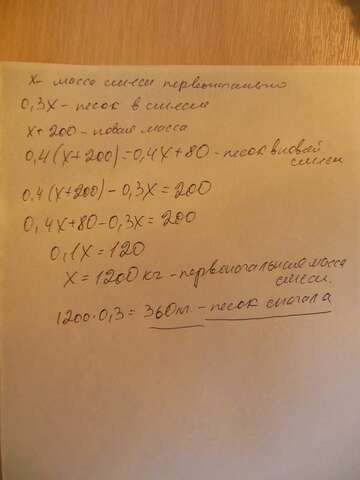 x - масса смеси первоначально
0,3x - песок в смеси
x + 200 - новая масса
0,4(x+200) = 0,4x+80 - песок в новой
смеси
0,4(x+200) - 0,3x = 200
0,4x+80-0,3x = 200
0,1x = 120
x = 1200 кг - первоначальная масса
смеси.
1200·0,3 = 360 - песок сначала